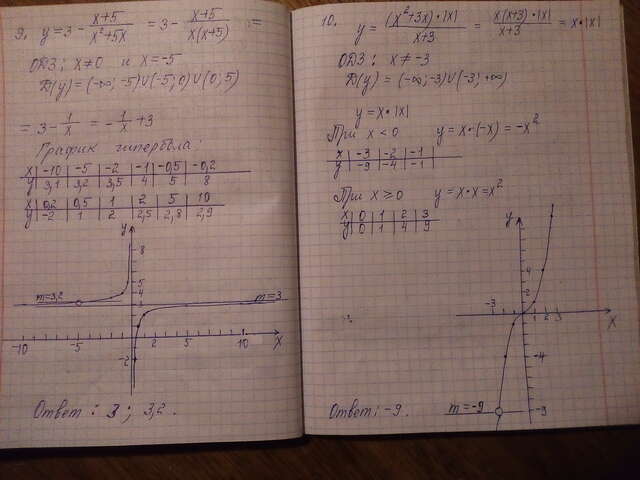 9. y = 3 - (x+5)/(x²+5x) = 3 - (x+5)/(x(x+5)) =
ОДЗ: x≠0 и x=-5
D(y) = (-∞; -5)∪(-5; 0)∪(0, 5)
= 3 - 1/x = -1/x + 3
График гипербола:
x | -10 | -5 | -2 | -1 | -0,5 | -0,2
y | 3,1 | 3,2 | 3,5 | 4 | 5 | 8
x | 0,2 | 0,5 | 1 | 2 | 5 | 10
y | -2 | 1 | 2 | 2,5 | 2,8 | 2,9
y
8
5
4
m=3,2
m=3
-10 -5 2 5 10 X
-2
Ответ: 3; 3,2.
10. y = ((x²+3x)·|x|)/(x+3) = (x(x+3)·|x|)/(x+3) = x·|x|
ОДЗ: x ≠ -3
D(y) = (-∞; -3)∪(-3; +∞)
y = x·|x|
При x < 0 y = x·(-x) = -x²
x | -3 | -2 | -1 |
y | -9 | -4 | -1 |
При x ≥ 0 y = x·x = x²
x | 0 | 1 | 2 | 3
y | 0 | 1 | 4 | 9
y
4
2
-3 1 2 3
X
-4
m=-9
-9
Ответ: -9.